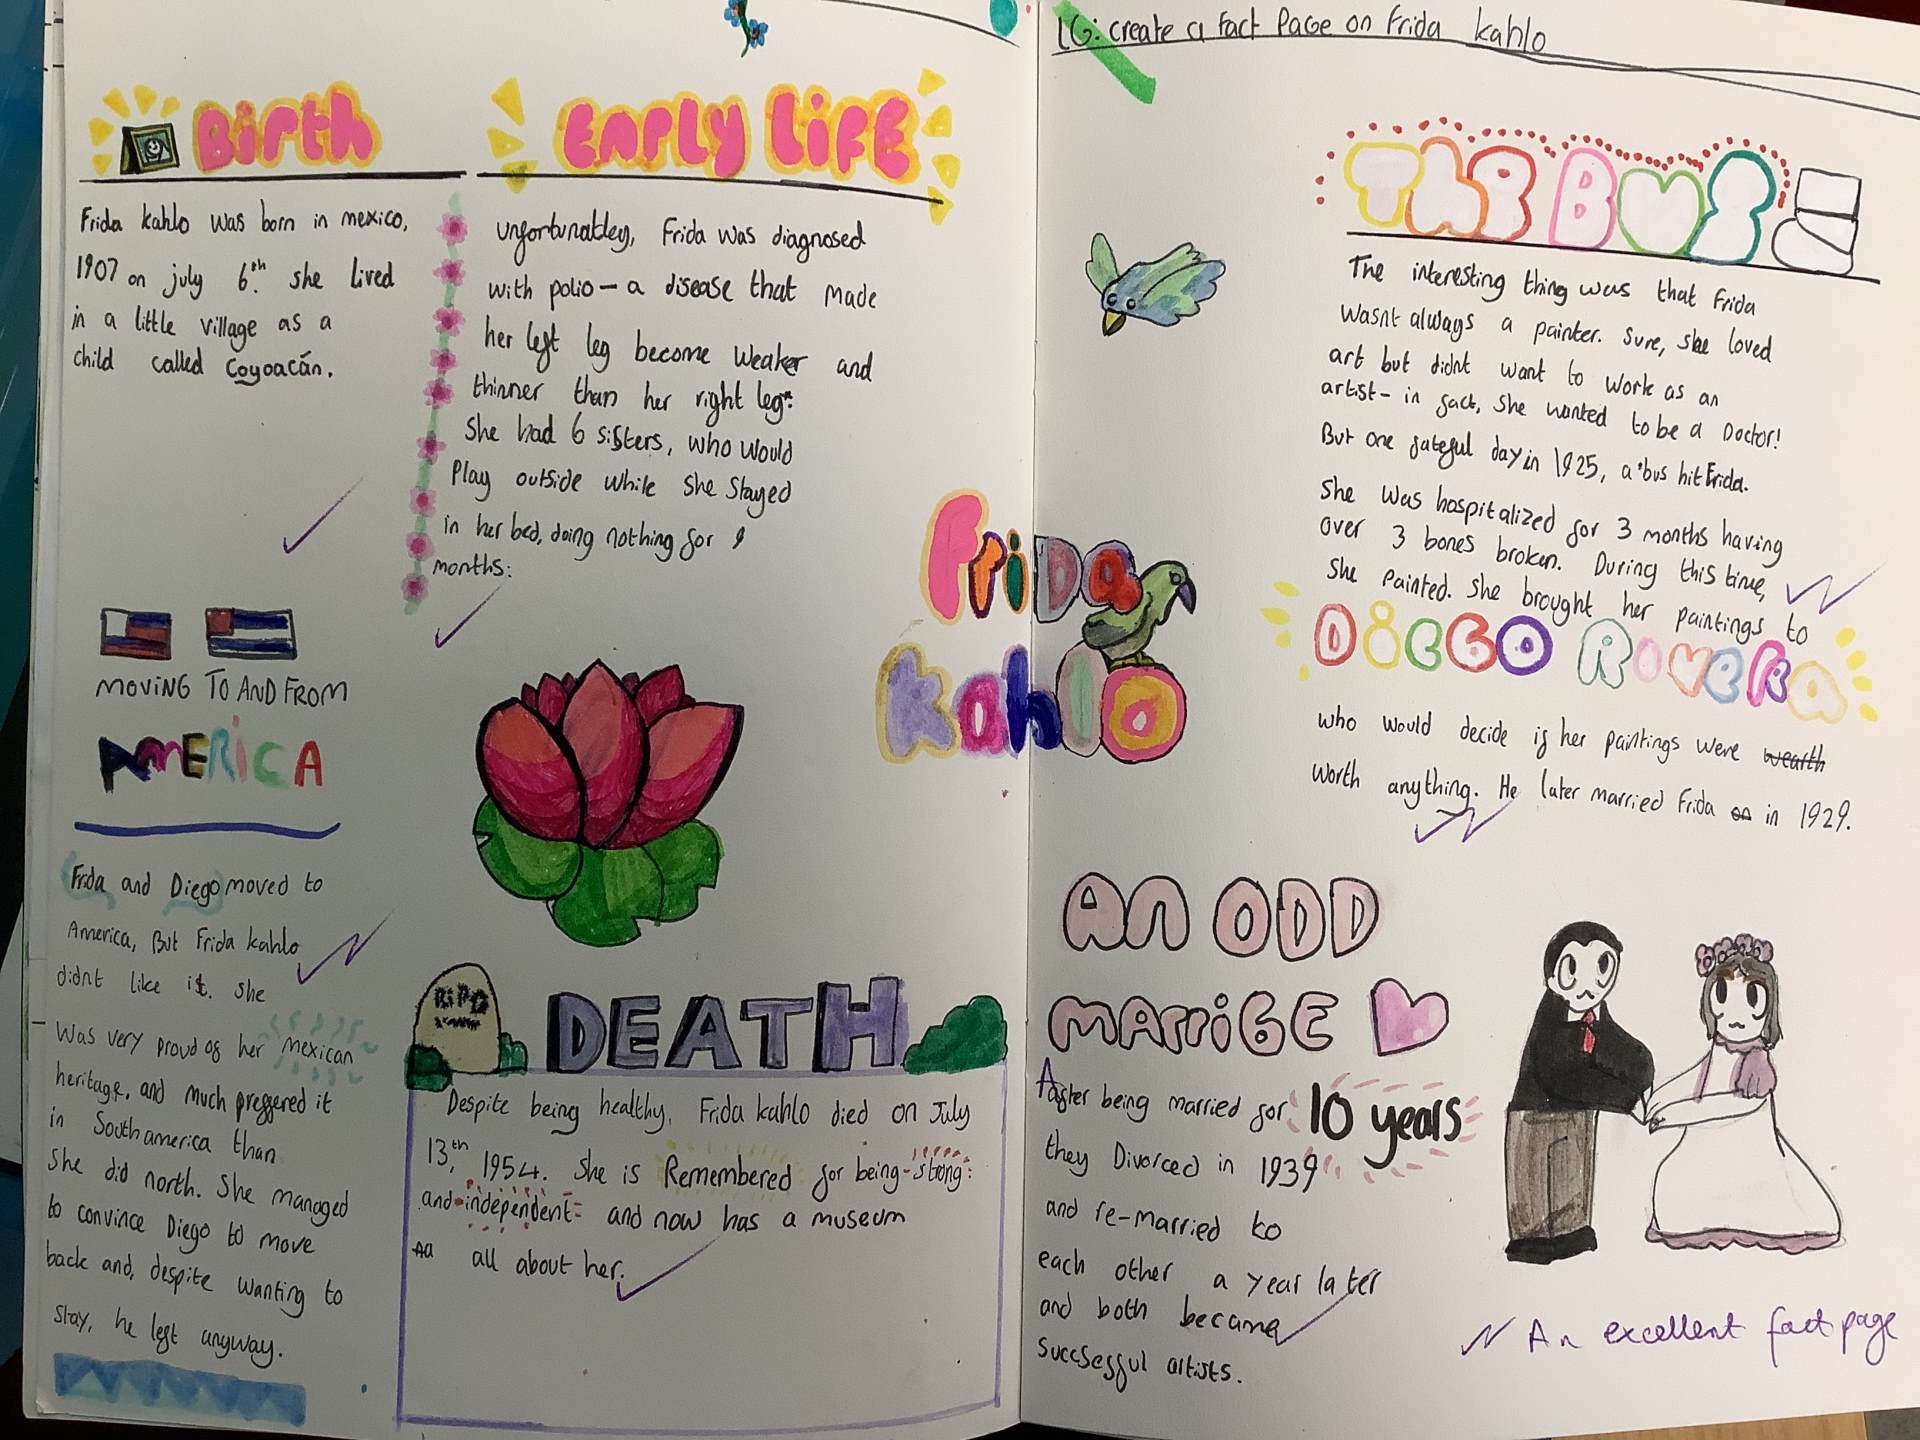 LG: create a fact page on Frida kahlo
Birth
Frida kahlo was born in mexico,
1907 on july 6th. she lived
in a little village as a
child called Coyoacán.
Early Life
unfortunatley, Frida was diagnosed
with polio - a disease that made
her left leg become weaker and
thinner than her right leg.
She had 6 sisters, who would
Play outside while she stayed
in her bed, doing nothing for 9
months.
MOVING TO AND FROM
AMERICA
Frida and Diego moved to
America, But Frida kahlo
didnt like it. she
Was very proud of her mexican
heritage, and much preffered it
in South america than
She did north. She managed
to convince Diego to move
back and, despite wanting to
stay, he left anyway.
RIP
DEATH
Despite being healthy, Frida kahlo died on July
13th, 1954. She is Remembered for being strong
and independent and now has a museum
all about her.
Frida
kahlo
THE BUS
The interesting thing was that Frida
wasnt always a painter. Sure, she loved
art but didnt want to work as an
artist - in fact, she wanted to be a Doctor!
But one fateful day in 1925, a bus hit Frida.
She was hospitalized for 3 months having
over 3 bones broken. During this time,
she painted. She brought her paintings to
DIEGO RIVERA
who would decide if her paintings were wearth
worth anything. He later married Frida on in 1929.
AN ODD
MARRIGE
After being married for 10 years
they Divorced in 1939
and re-married to
each other a year later
and both became
succsessful artists.
An excellent fact page